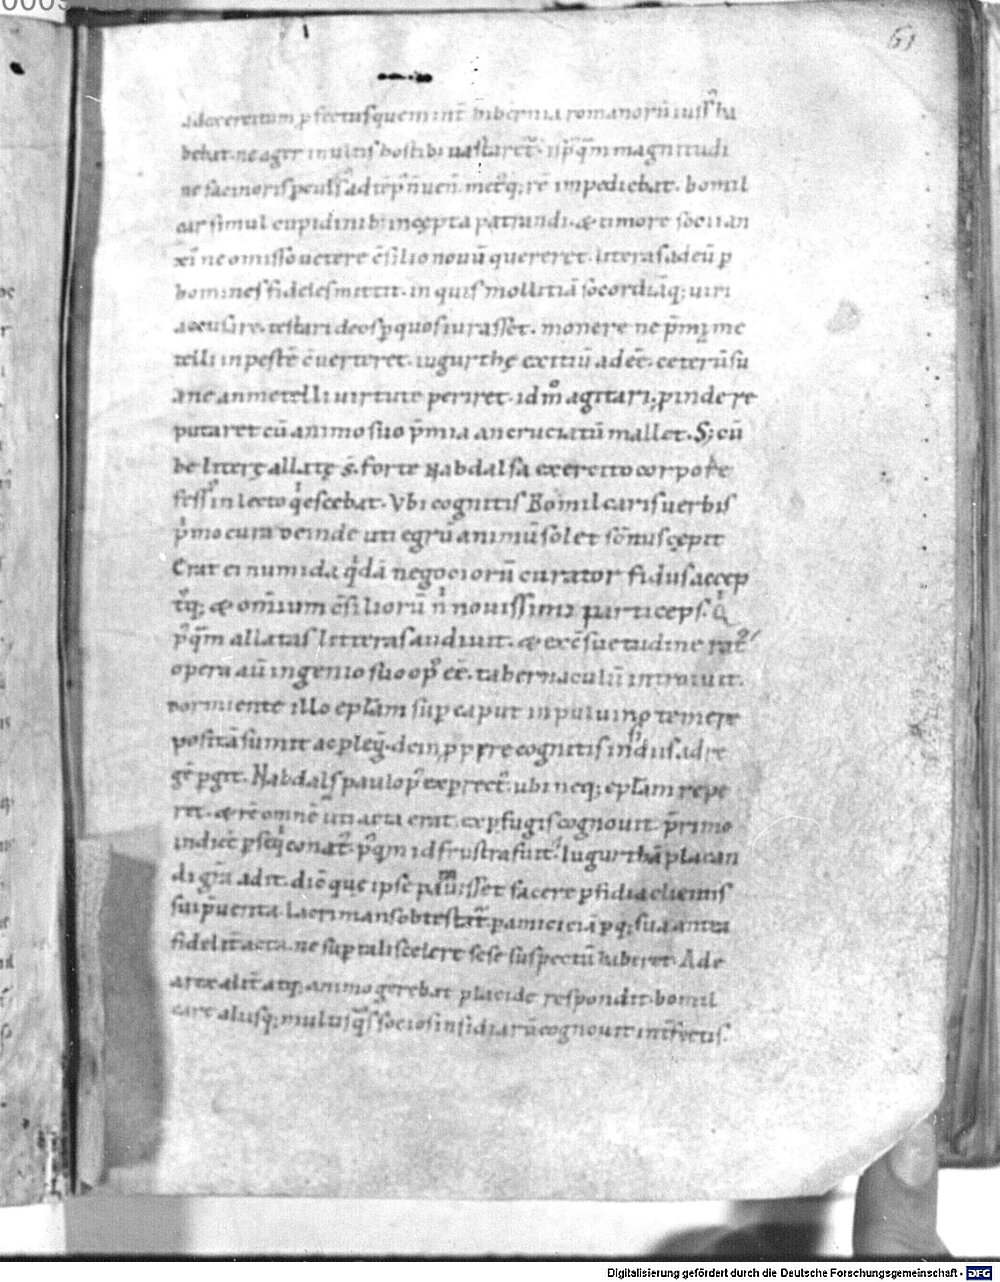 61
ad exercitum pfectus que int̄ hiberna romanorū iuss᷒ ha
bebat. ne ager inultis hostib; uastaret᷒. is p᷒q̄m magnitudi
ne facinoris pculs᷒ ad tēp᷒ n̄ uen̄ met᷒q; rē impediebat. bomil
car simul cupidinib; incepta patrandi. & timore socii an
xi᷒ ne omisso uetere c̄silio nouū quereret. litteras ad eū p
homines fideles mittit. in quis mollitiā socordiāq; uiri
accusare. testari deos p quos iurasset. monere ne p̄mia me
telli in pestē c̄uerteret. iugurthę exitiū adeē. ceterū su
ane an metelli uirtute periret. id m̊ agitari. pinde re
putaret cū animo suo p̄mia an cruciatū mallet. S; cū
hę litterę allatę s̄. forte Nabdalsa exercito corpore
fess᷒ in lecto q̇escebat. Vbi cognitis Bomilcaris uerbis
ṗmo cura deinde uti egrū animū solet sōnus cepit
Erat ei numida q̇dā negociorū curator fidus accep
t᷒q; & om̄ium c̄siliorū n̄ nouissimi particeps. Q̇
p᷒q̄m allatas litteras audiuit. & ex c̄suetudine rat᷒
opera aū ingenio suo op᷒ eē. tabernaculū introiuit.
dormiente illo ep̄lam sup caput in puluino temere
positā sumit ac plegit. dein ppere cognitis insidiis ad re
gē pgit. Nabdalsa paulo p᷒ expreet᷒. ubi neq; ep̄lam repe
rit. & rē omnē uti acta erat. ex pfugis cognouit. p̄rimo
indicē pseq̇ conat᷒. p᷒q̄m id frustra fuit. Iugurthā placan
di gr̄a adit. dic̄ que ipse pauisset facere pfidia clientis
sui p̄uenta. lacrimans obtestat᷒ p amiciciā pq; sua antea
fidelit̄ acta. ne sup tali scelere sese suspectū haberet. Ad e
a rex alit̄ atq; animo gerebat placide respondit. bomil
care aliisq; multis q̄s socios insidiarū cognouit int̄fectis.
Digitalisierung gefördert durch die Deutsche Forschungsgemeinschaft - DFG